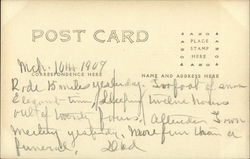 POST CARD
PLACE
STAMP
HERE
Mch. 16th 1909
CORRESPONDENCE HERE
NAME AND ADDRESS HERE
Rode 15 miles yesterday. Two foot of snow
Elegant time, sleeping twelve hours
out of twenty four. Attended Town
Meeting yesterday. More fun than a
funeral. Dad